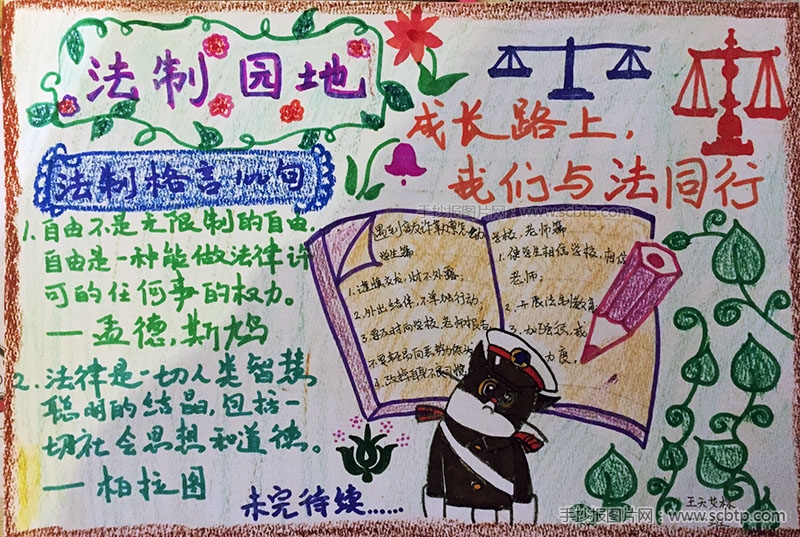 法制园地
成长路上，
我们与法同行
法制格言100句
1.自由不是无限制的自由，
自由是一种能做法律许
可的任何事的权力。
—孟德，斯鸠
2.法律是一切人类智慧
聪明的结晶，包括一
切社会思想和道德。
—柏拉图
未完待续……
遇到敲诈勒索怎么办
学生篇
1.谨慎交友，财不外露；
2.外出结伴，不单独行动，
3.要及时向学校、老师报告
不要轻易向恶势力低头
学校、老师篇
1.使学生相信学校，相信
老师；
2.开展法制教育
3.加强惩戒
力度，
手抄报图片网：www.scbtp.com
手抄报图片网：www.scbtp.com